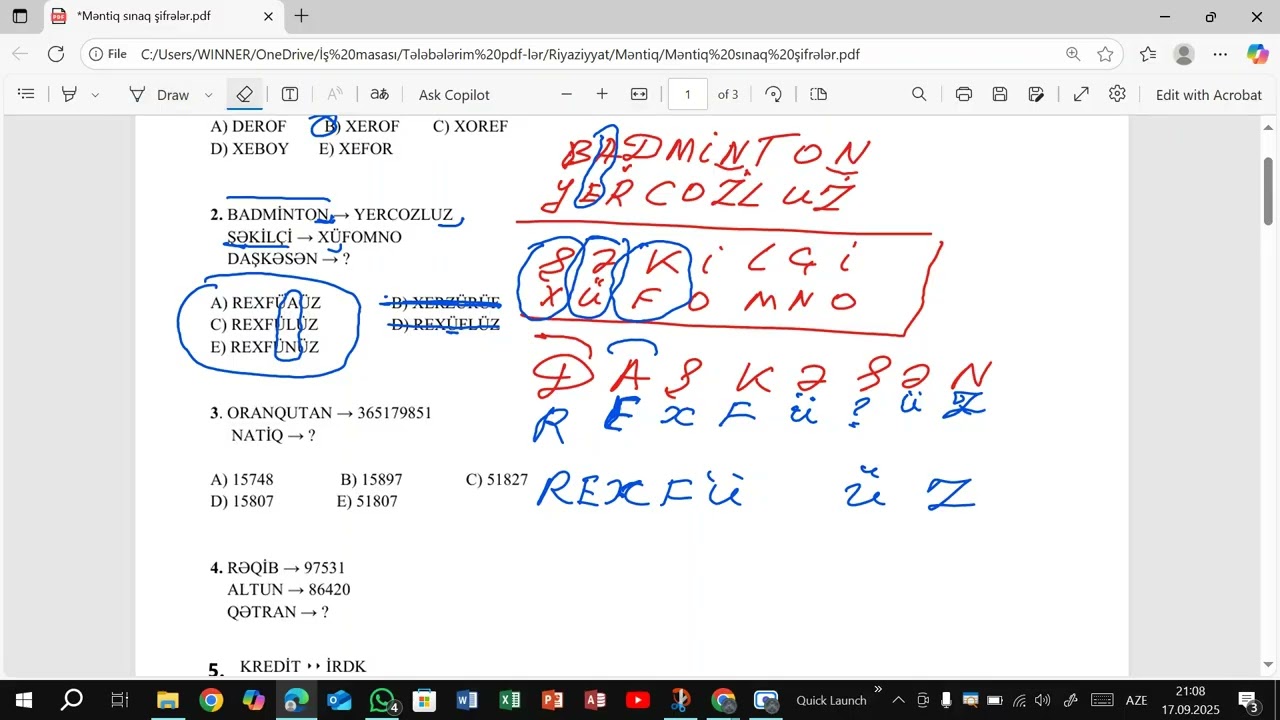 *Məntiq sınaq şifrələr.pdf
File C:/Users/WINNER/OneDrive/İş%20masası/Tələbələrim%20pdf-lər/Riyaziyyat/Məntiq/Məntiq%20sınaq%20şifrələr.pdf
Draw Ask Copilot 1 of 3 Edit with Acrobat
A) DEROF B) XEROF C) XOREF
D) XEBOY E) XEFOR
2. BADMİNTON → YERCOZLUZ
ŞƏKİLÇİ → XÜFOMNO
DAŞKƏSƏN → ?
A) REXFÜAÜZ B) XERZÜRÜE
C) REXFÜLÜZ D) REXÜELÜZ
E) REXFÜNÜZ
3. ORANQUTAN → 365179851
NATİQ → ?
A) 15748 B) 15897 C) 51827
D) 15807 E) 51807
4. RƏQİB → 97531
ALTUN → 86420
QƏTRAN → ?
5. KREDİT → İRDK
BADMİNTON
YERCOZLUZ
ŞƏKİLÇİ
XÜFOMNO
DAŞKƏSƏN
REXFÜ?ÜZ
REXFÜ ÜZ
Quick Launch AZE 21:08
17.09.2025